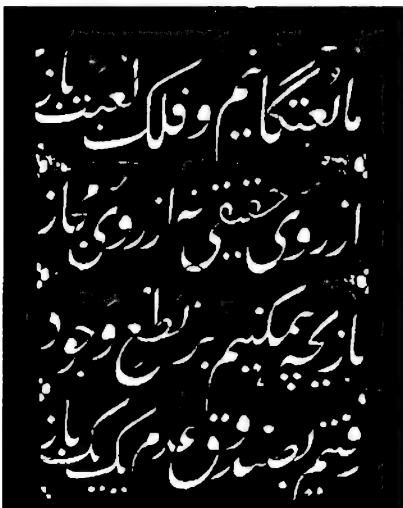 ما لعبتگانیم و فلک لعبت باز
از روی حقیقی نه از روی مجاز
بازیچه همی‌کنیم بر نطع وجود
رفتیم بصندوق عدم یک یک باز